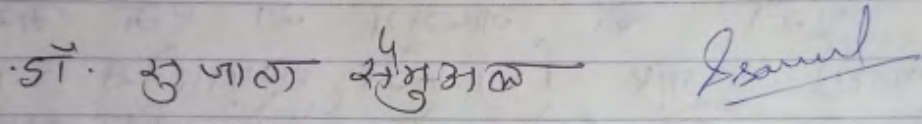 डॉ. सुजाता सॅम्युअल Ssamuel